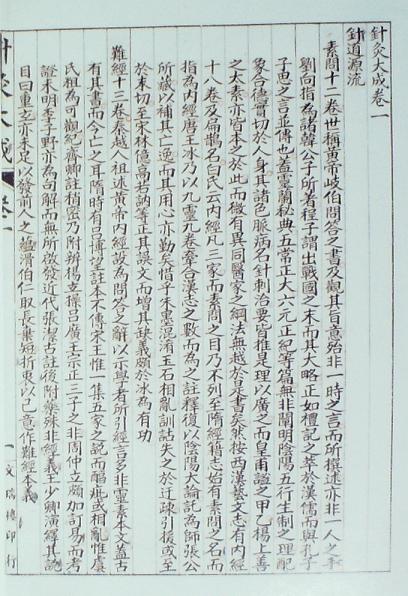 針灸大成卷一
針道源流
素問十二卷世稱黃帝岐伯問答之書及觀其旨意殆非一時之言而所撰述亦非一人之手
劉向指為諸韓公子所著程子謂出戰國之末而其大略正如禮記之萃於漢儒而與孔子
子思之言並傳也蓋靈蘭秘典五常正大六元正紀等篇無非闡明陰陽五行生制之理配
象合德實切於人身其諸色脈病名針刺治要皆推是理以廣之而皇甫謐之甲乙楊上善
之太素亦皆本之於此而微有異同醫家之綱法無越於是書矣然按西漢藝文志有內經
十八卷及扁鵲名白氏云內經凡三家而素問之目乃不列至隋經籍志始有素問之名而
指為內經唐王冰乃以九靈九卷牽合漢志之數而為之註釋復以陰陽大論託為師張公
所藏以補其亡逸而其用心亦勤矣惜乎朱墨混淆玉石相亂訓詁失之於迂疎引援或至
於未切至宋林億高若訥等正其誤文而增其缺義頗於冰為有功
難經十三卷秦越人祖述黃帝內經設為問答之辭以示學者所引經言多非靈素本文蓋古
有其書而今亡之耳隋時有呂博望註本不傳宋王惟一集五家之說而醇疵或相亂惟虞
氏粗為可觀紀齋卿註稍密乃附辨楊玄操呂廣王宗正三子之非周仲立頗加訂易而考
證未明李子野亦為句解而無所啟發近代張潔古註後附藥殊非經義王少卿演經其說
目曰重玄亦未足以發前人之蘊滑伯仁取長棄短折衷以己意作難經本義
針灸大成 卷一
一
文瑞樓印行